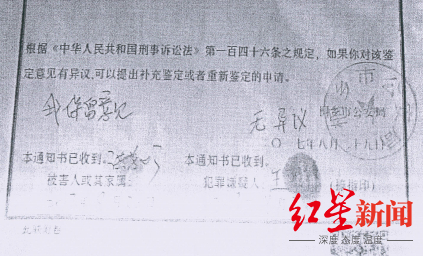 根据《中华人民共和国刑事诉讼法》第一百四十六条之规定，如果你对该鉴
定意见有异议，可以提出补充鉴定或者重新鉴定的申请。
我保留意见
无异议
市公安局
〇七年八月二十八日
本通知书已收到。
本通知书已收到。
被害人或其家属
犯罪嫌疑人 王
（捺指印）
红星新闻
深度 态度 温度
此联附卷